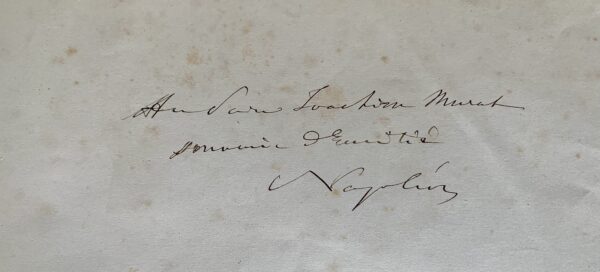 Au Prince Joachim Murat
souvenir d'amitié
Napoléon